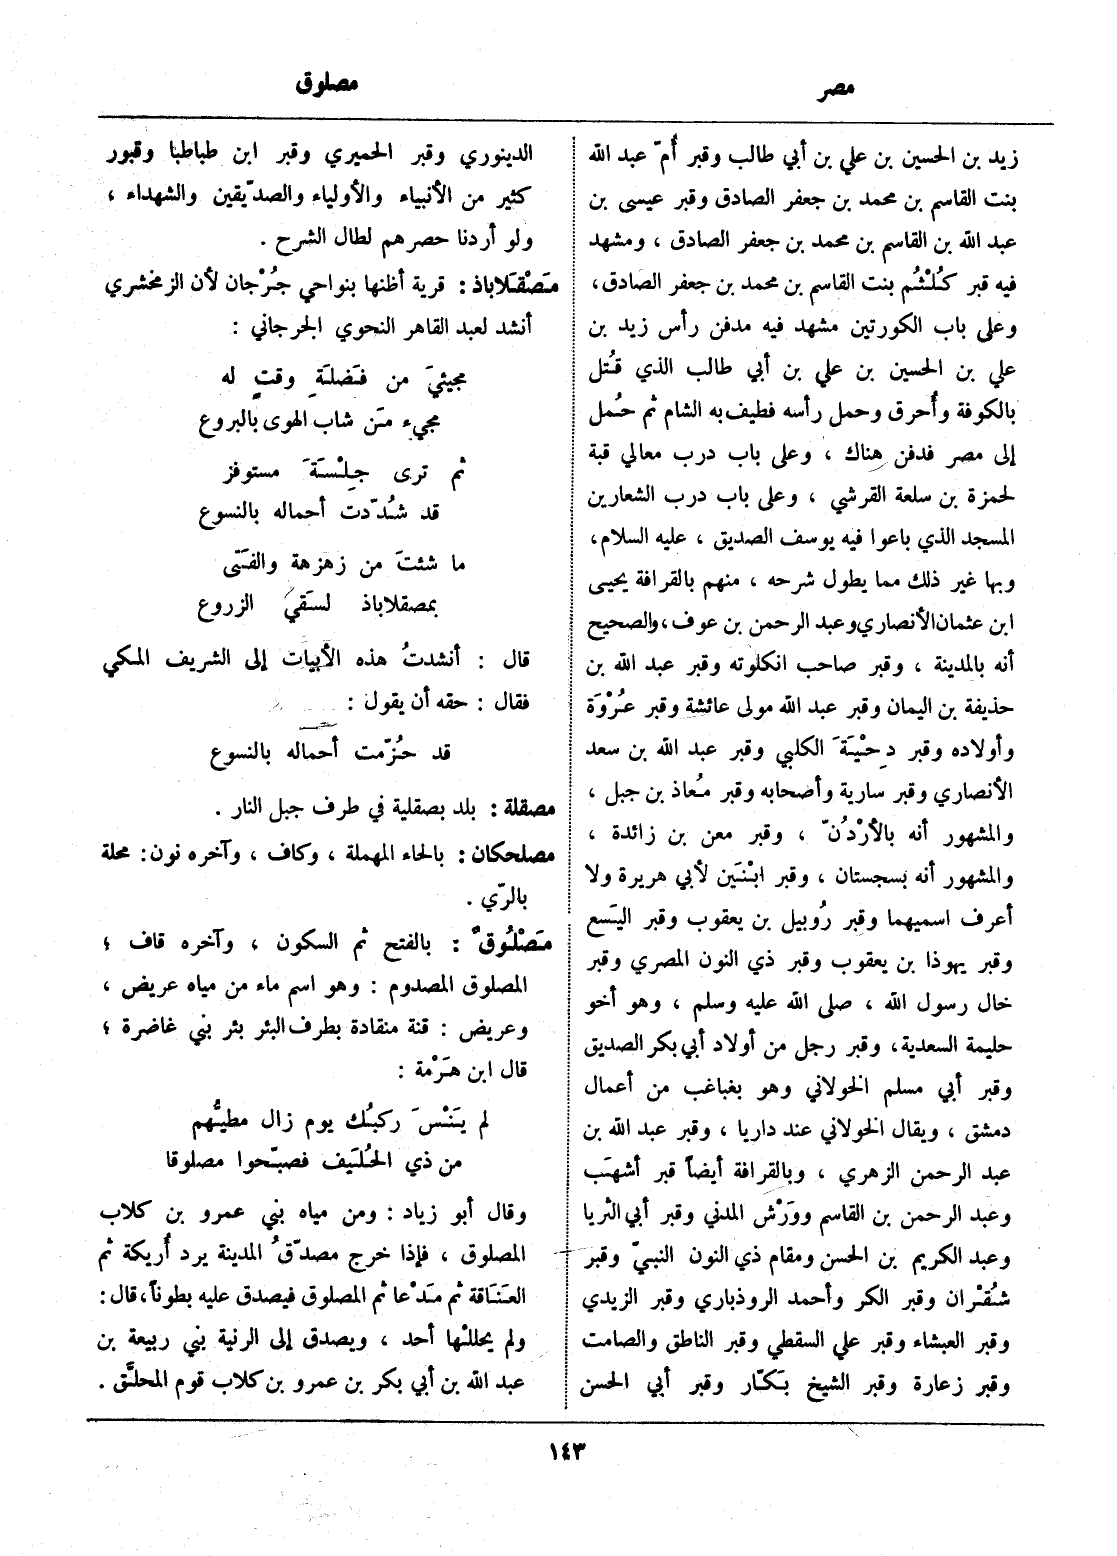 مصر
مصلوق
زيد بن الحسين بن علي بن أبي طالب وقبر أُمّ عبد الله
بنت القاسم بن محمد بن جعفر الصادق وقبر عيسى بن
عبد الله بن القاسم بن محمد بن جعفر الصادق ، ومشهد
فيه قبر كُلْثُم بنت القاسم بن محمد بن جعفر الصادق،
وعلى باب الكورتين مشهد فيه مدفن رأس زيد بن
علي بن الحسين بن علي بن أبي طالب الذي قُتل
بالكوفة وأُحرق وحمل رأسه فطيف به الشام ثم حُمل
إلى مصر فدفن هناك ، وعلى باب درب معالي قبة
لحمزة بن سلعة القرشي ، وعلى باب درب الشعارين
المسجد الذي باعوا فيه يوسف الصديق ، عليه السلام،
وبها غير ذلك مما يطول شرحه ، منهم بالقرافة يحيى
ابن عثمان الأنصاري وعبد الرحمن بن عوف، والصحيح
أنه بالمدينة ، وقبر صاحب انكلوته وقبر عبد الله بن
حذيفة بن اليمان وقبر عبد الله مولى عائشة وقبر عُرْوَة
وأولاده وقبر دِحْيَةَ الكلبي وقبر عبد الله بن سعد
الأنصاري وقبر سارية وأصحابه وقبر مُعاذ بن جبل ،
والمشهور أنه بالأُرْدُنّ ، وقبر معن بن زائدة ،
والمشهور أنه بسجستان ، وقبر ابْنَين لأبي هريرة ولا
أعرف اسميهما وقبر رُوبيل بن يعقوب وقبر اليَسع
وقبر يهوذا بن يعقوب وقبر ذي النون المصري وقبر
خال رسول الله ، صلى الله عليه وسلم ، وهو أخو
حليمة السعدية، وقبر رجل من أولاد أبي بكر الصديق
وقبر أبي مسلم الخولاني وهو بغباغب من أعمال
دمشق ، ويقال الخولاني عند داريا ، وقبر عبد الله بن
عبد الرحمن الزهري ، وبالقرافة أيضاً قبر أشهَب
وعبد الرحمن بن القاسم ووَرْش المدني وقبر أبي الثريا
وعبد الكريم بن الحسن ومقام ذي النون النبيّ وقبر
شُقْران وقبر الكر وأحمد الروذباري وقبر الزيدي
وقبر العبشاء وقبر علي السقطي وقبر الناطق والصامت
وقبر زعارة وقبر الشيخ بَكّار وقبر أبي الحسن
الدينوري وقبر الحميري وقبر ابن طباطبا وقبور
كثير من الأنبياء والأولياء والصدّيقين والشهداء ،
ولو أردنا حصرهم لطال الشرح .
مَصْقَلاباذ : قرية أظنها بنواحي جُرْجان لأن الزمخشري
أنشد لعبد القاهر النحوي الجرجاني :
مجيئيَ من فَضلَةِ وقتٍ له
مجيء مَن شاب الهوى بالبروع
ثم ترى جِلْسَةَ مستوفز
قد شُدّدت أحماله بالنسوع
ما شئتَ من زهزهة والفَتى
بمصقلاباذ لسَقيَ الزروع
قال : أنشدتُ هذه الأبيات إلى الشريف المكي
فقال : حقه أن يقول :
قد حُزّمت أحماله بالنسوع
مصقلة : بلد بصقلية في طرف جبل النار .
مصلحكان : بالحاء المهملة ، وكاف ، وآخره نون: محلة
بالرّي .
مَصْلُوقٌ : بالفتح ثم السكون ، وآخره قاف ؛
المصلوق المصدوم : وهو اسم ماء من مياه عريض ،
وعريض : قنة منقادة بطرف البئر بئر بني غاضرة ؛
قال ابن هَرْمة :
لم يَنْسَ ركبُك يوم زال مطيُّهم
من ذي الحُلَيف فصبّحوا مصلوقا
وقال أبو زياد : ومن مياه بني عمرو بن كلاب
المصلوق ، فإذا خرج مصدّقُ المدينة يرد أُريكة ثم
العَنَاقة ثم مَدْعا ثم المصلوق فيصدق عليه بطوناً، قال:
ولم يحللْها أحد ، ويصدق إلى الرنية بني ربيعة بن
عبد الله بن أبي بكر بن عمرو بن كلاب قوم المحلَّق .
١٤٣